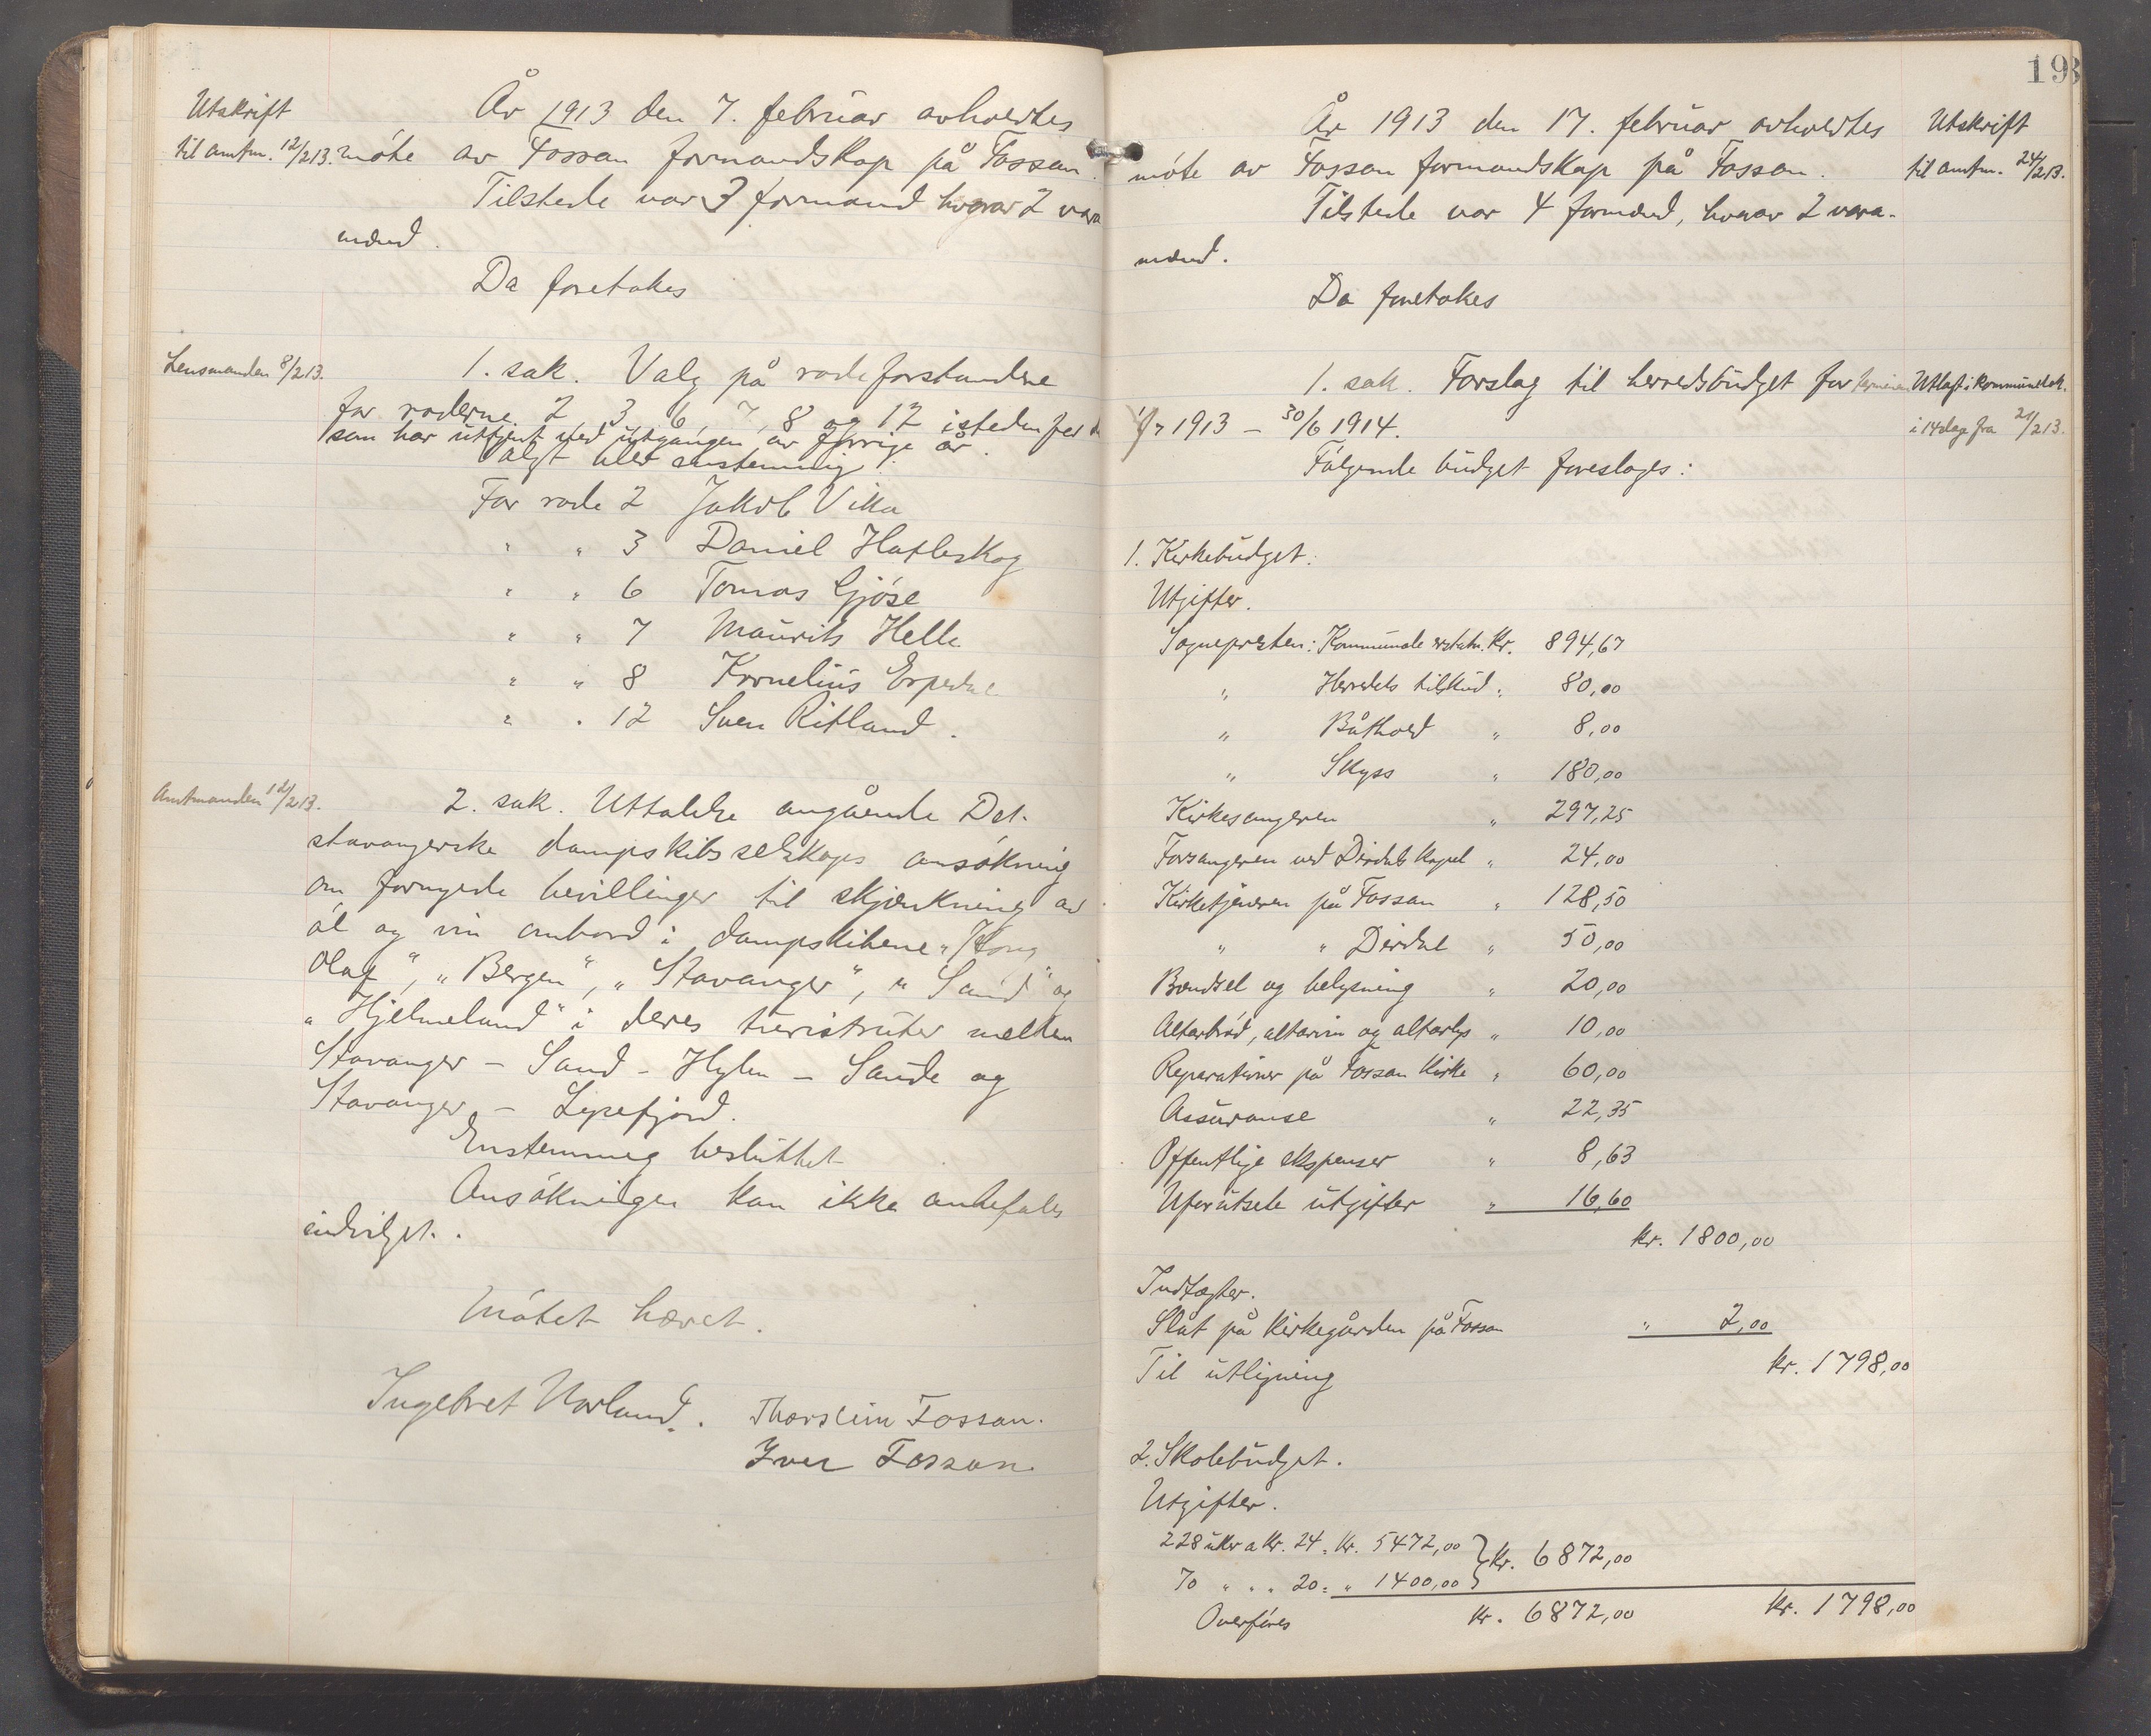 Utskrift
til amtm. 12/2 13.
År 1913 den 7. februar avholdtes
møte av Fossan formandskap på Fossan.
Tilstede var 3 formænd hvorav 2 vara
mænd.
Da foretokes
Lensmanden 8/2 13.
1. sak. Valg på rodeforstandere
for roderne 2 3 6 7, 8 og 12 istedenfor de
som har uttjent ved utgangen av forrige år.
Valgt blev enstemmig:
For rode 2 Jakob Vika
" " 3 Daniel Hatleskog
" " 6 Tomas Gjöse
" " 7 Maurits Helle
" " 8 Kornelius Espedal
" " 12 Sven Ritland.
Amtmanden 12/2 13.
2. sak. Uttalelse angående Det
stavangerske dampskibsselskaps ansökning
om fornyede bevillinger til skjænkning av
öl og vin ombord i dampskibene "Kong
Olaf", "Bergen", "Stavanger", "Sand" og
"Hjelmeland" i deres turistruter mellem
Stavanger – Sand – Hylen – Saude og
Stavanger – Lysefjord.
Enstemmig besluttet
Ansökningen kan ikke anbefales
indvilget.
Mötet hævet.
Ingebret Norland. Thorstein Fossan.
Iver Fossan.
193
År 1913 den 17. februar avholdtes
møte av Fossan formandskap på Fossan.
Utskrift
til amtm. 24/2 13.
Tilstede var 4 formænd, hvorav 2 vara-
mænd.
Da foretokes
1. sak. Forslag til herredsbudget for terminen
1/7 1913 – 30/6 1914.
Utlagt i kommunelok.
i 14 dage fra 21/2 13.
Følgende budget foreslages:
1. Kirkebudget.
Utgifter.
Sognepresten: Kommunale erstatn. Kr. 894,67
" Herredets tilskud " 80,00
" Båthold " 8,00
" Skyss " 180,00
Kirkesangeren " 297,25
Forsangeren ved Dirdals kapel " 24,00
Kirketjeneren på Fossan " 128,50
" " Dirdal " 50,00
Brændsel og belysning " 20,00
Alterbröd, altervin og alterlys " 10,00
Reparationer på Fossan kirke " 60,00
Assuranse " 22,35
Offentlige ekspenser " 8,63
Uforutsete utgifter " 16,60
kr. 1800,00
Indtægter.
Slåt på kirkegården på Fossan " 2,00
Til utligning kr. 1798,00
2. Skolebudget.
Utgifter.
228 uker a kr. 24 = kr. 5472,00 } kr. 6872,00
70 " " " 20 = " 1400,00
Overføres kr. 6872,00 kr. 1798,00